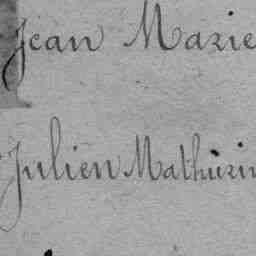 Jean Marie
Julien Mathurin